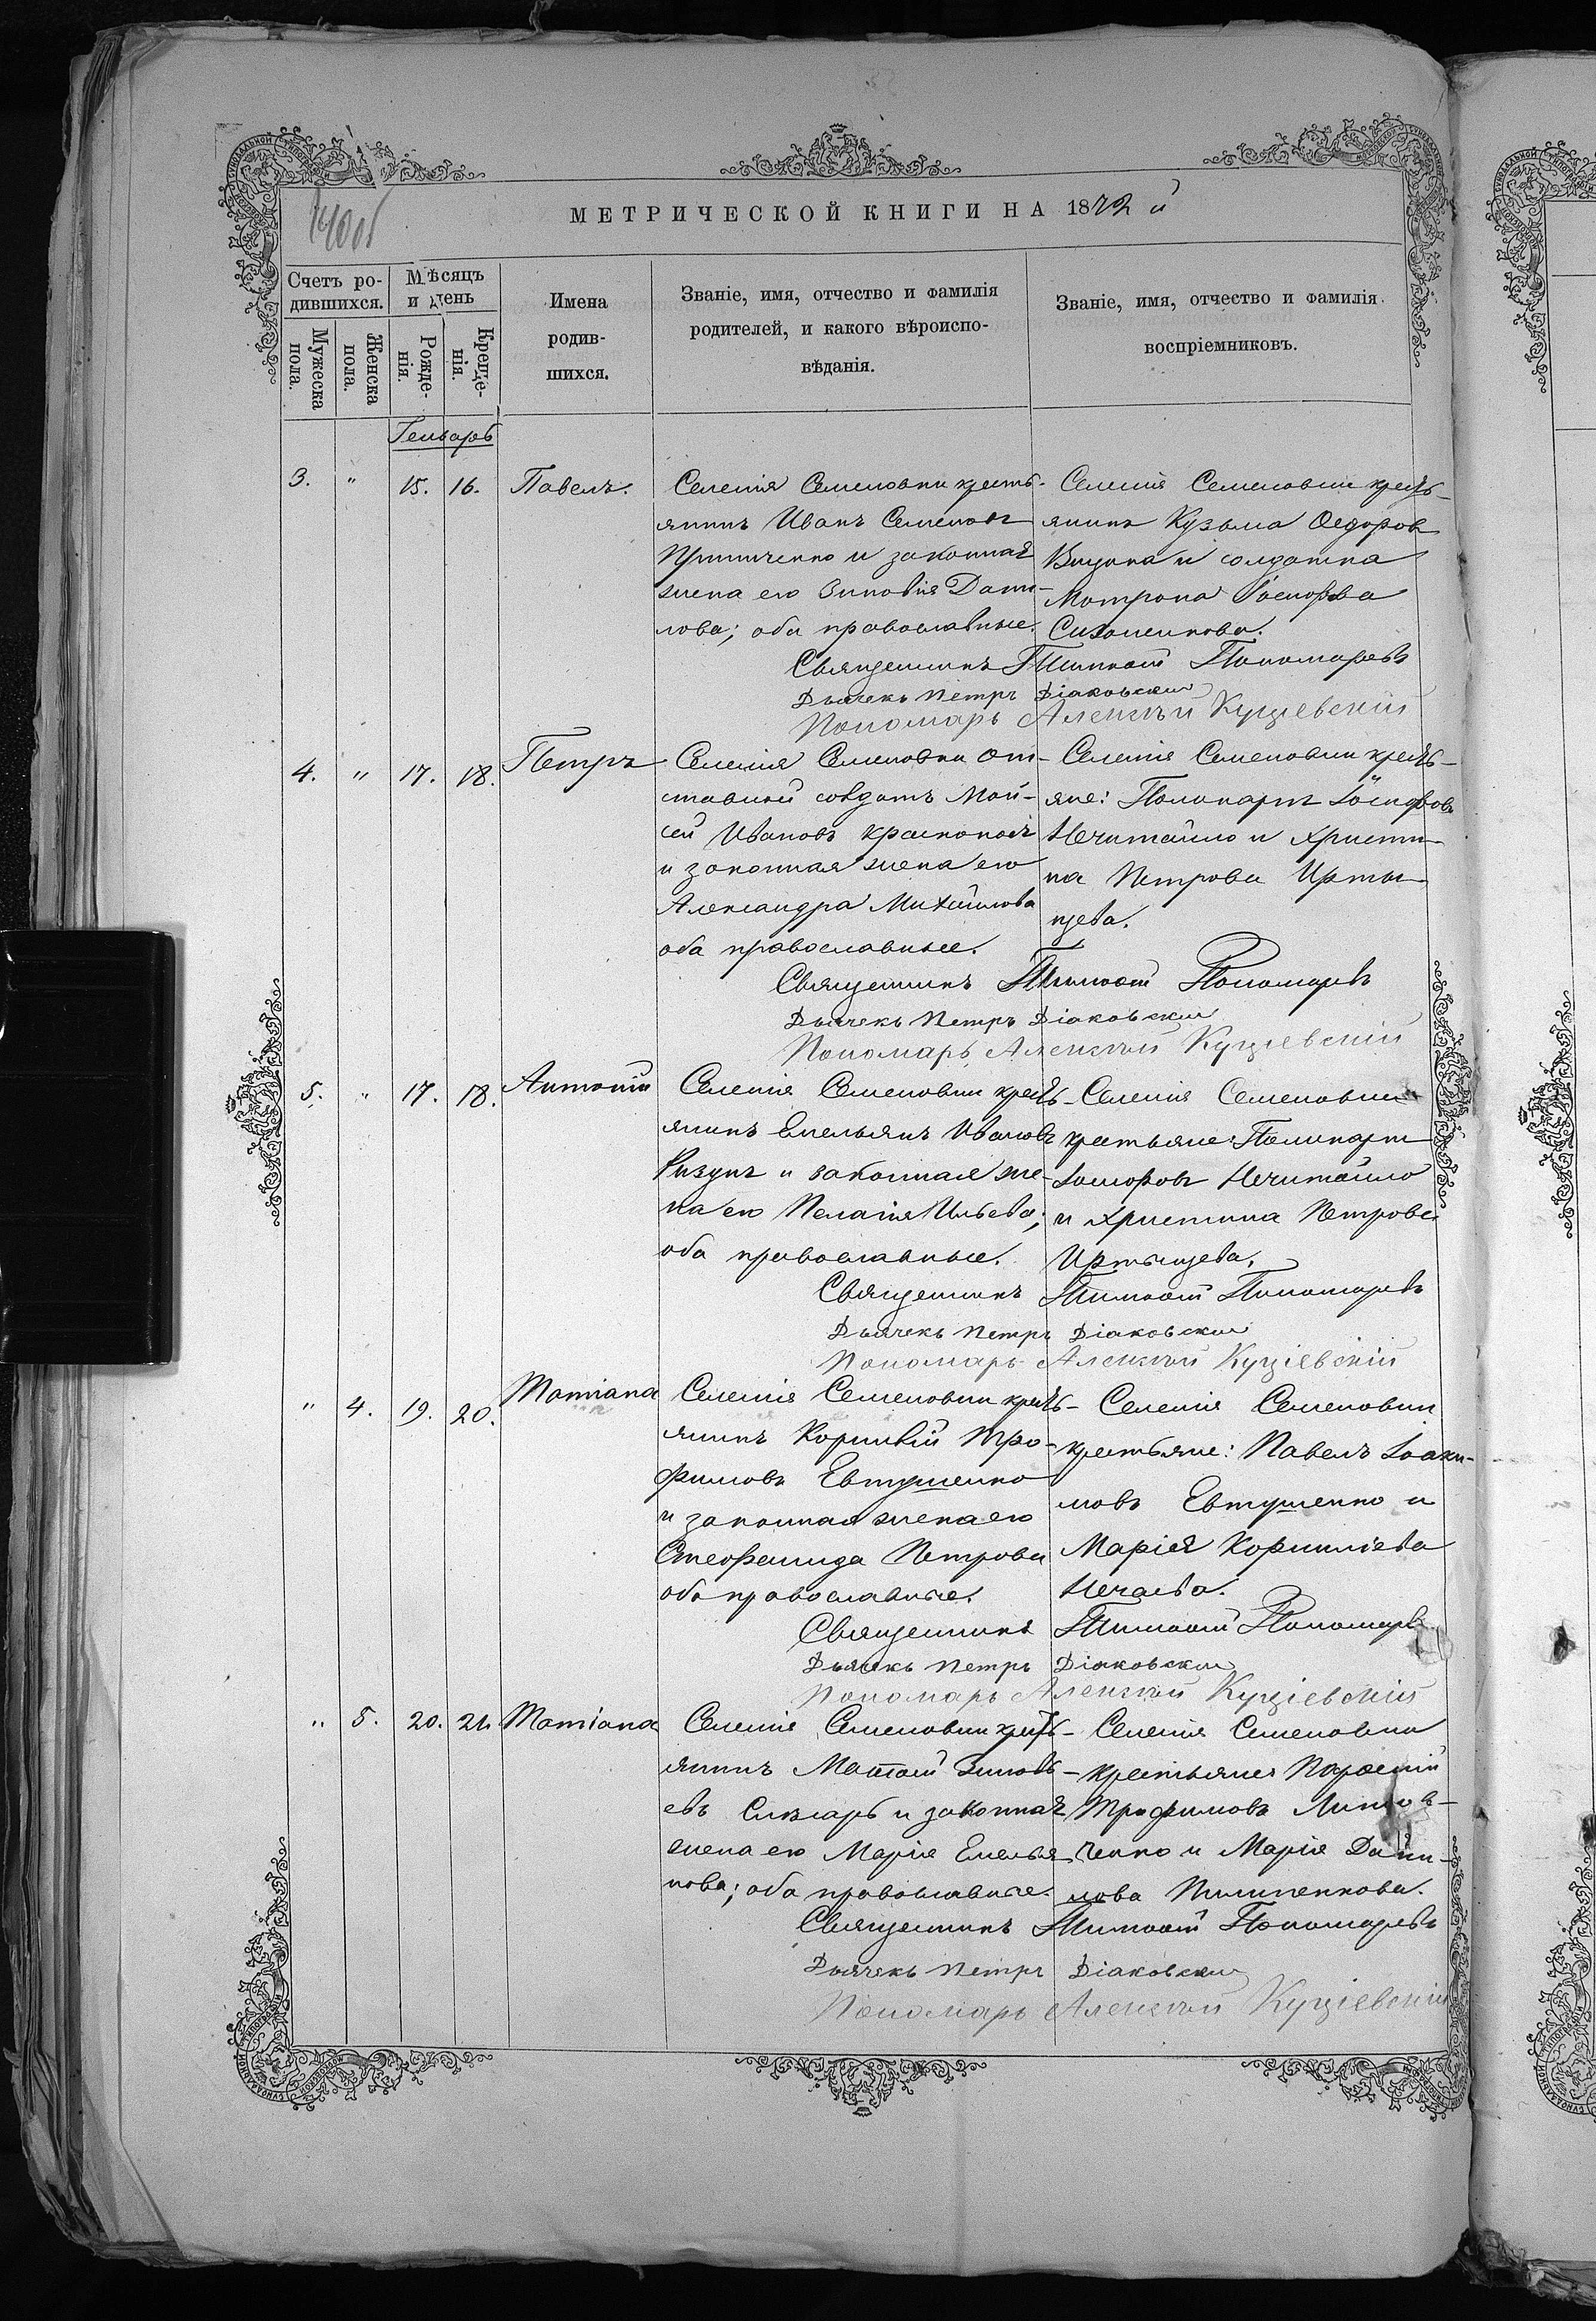 МЕТРИЧЕСКОЙ КНИГИ НА 1872 й
Счетъ ро-
дившихся.
Мѣсяцъ
и день
Имена
родив-
шихся.
Званіе, имя, отчество и фамилія
родителей, и какого вѣроиспо-
вѣданія.
Званіе, имя, отчество и фамилія
воспріемниковъ.
Мужеска
пола.
Женска
пола.
Рожде-
нія.
Креще-
нія.
Генварь
3. " 15. 16. Павелъ.
Селенія Семеновки кресть-
янинъ Иванъ Семеновъ
и законная
жена его Зиновія Дани-
лова; оба православные.
Селенія Семеновки кресть-
янинъ Кузьма Ѳедоровъ
и солдатка
Матрона
Священникъ Тимоѳей Пономаревъ
Дьячекъ Петръ Діаковскій
Пономарь Алексѣй Кущевскій
4. " 17. 18. Петръ
Селенія Семеновки от-
ставной солдатъ Мой-
сей Ивановъ
и законная жена его
Александра Михайлова
оба православные.
Селенія Семеновки кресть-
яне: Поликарпъ Іосифовъ
Нечитайло и Христи-
на Петрова Ирты-
щева.
Священникъ Тимоѳей Пономаревъ
Дьячекъ Петръ Діаковскій
Пономарь Алексѣй Кущевскій
5. " 17. 18. Антоній
Селенія Семеновки кресть-
янинъ Емельянъ Ивановъ
Ризунъ и законная же-
на его Пелагія Ильева;
оба православные.
Селенія Семеновки
крестьяне: Поликарпъ
Іосифовъ Нечитайло
и Христина Петрова
Иртыщева.
Священникъ Тимоѳей Пономаревъ
Дьячекъ Петръ Діаковскій
Пономарь Алексѣй Кущевскій
" 4. 19. 20. Татіана
Селенія Семеновки кресть-
янинъ Корнилій Тро-
фимовъ Евтушенко
и законная жена его
Стефанида Петрова
оба православные.
Селенія Семеновки
крестьяне: Павелъ Іоаки-
мовъ Евтушенко и
Марія Корниліева
Нечаева.
Священникъ Тимоѳей Пономаревъ
Дьячекъ Петръ Діаковскій
Пономарь Алексѣй Кущевскій
" 5. 20. 21. Татіана
Селенія Семеновки кресть-
янинъ Матѳей Зиновь-
евъ Слѣсарь и законная
жена его Марія Емелья-
нова; оба православные.
Селенія Семеновки
крестьяне
Трофимовъ
ченко и Марія Дани-
лова
Священникъ Тимоѳей Пономаревъ
Дьячекъ Петръ Діаковскій
Пономарь Алексѣй Кущевскій